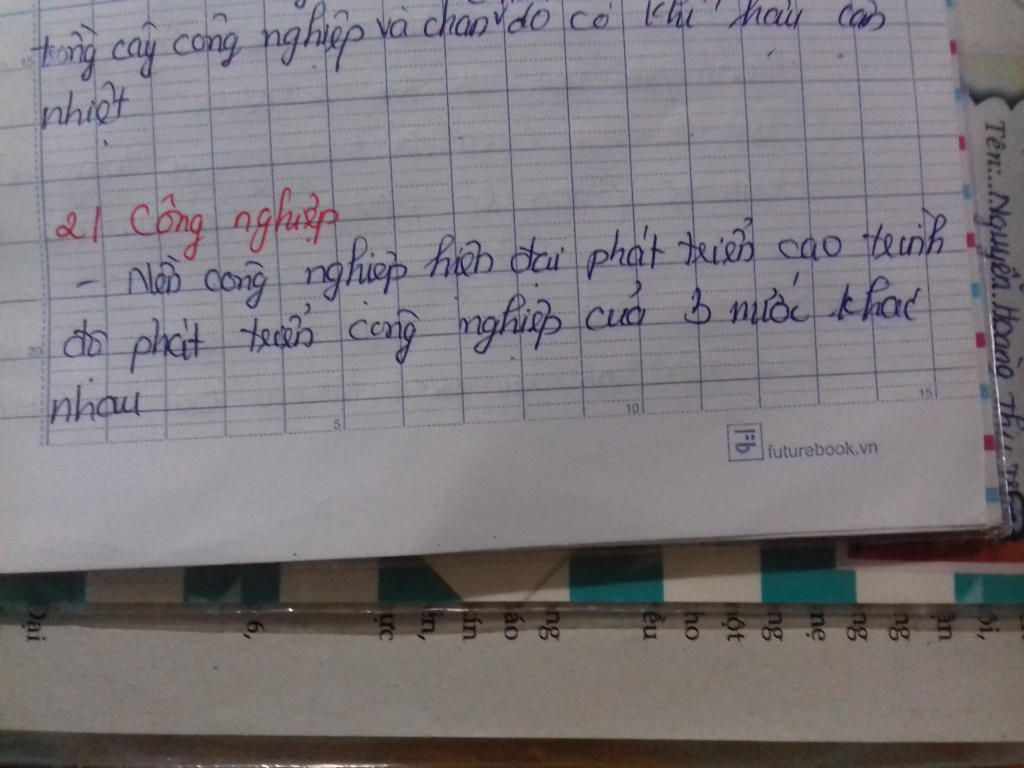 trồng cây công nghiệp và chăn do có khí hậu cận
nhiệt
2/ Công nghiệp
- Nền công nghiệp hiện đại phát triển cao trình
độ phát triển công nghiệp của 3 nước khác
nhau
5
10
15
futurebook.vn
Tên:...Nguyễn Hoàng Thu
Đại
6,
ực
ín,
ín
áo
ng
ều
ho
uột
ng
mẹ
ng
ng
ận
ôi,